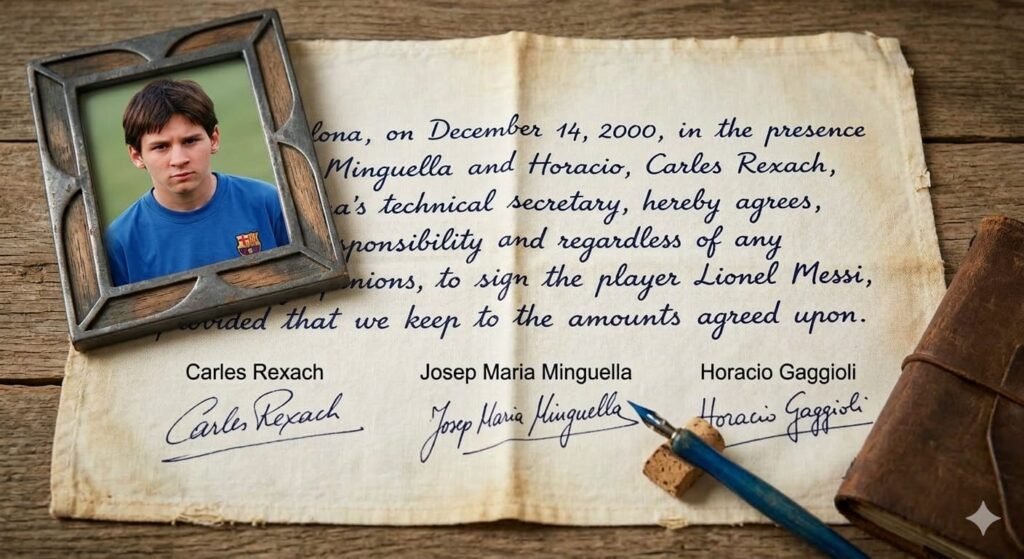 on December 14, 2000, in the presence
Minguella and Horacio, Carles Rexach,
technical secretary, hereby agrees,
and regardless of any
to sign the player Lionel Messi,
that we keep to the amounts agreed upon.
Carles Rexach Josep Maria Minguella Horacio Gaggioli
Carles Rexach Josep Maria Minguella Horacio Gaggioli